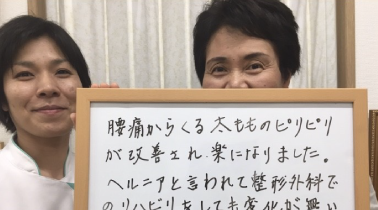 腰痛からくる太もものピリピリ
が改善され楽になりました。
ヘルニアと言われて整形外科で
のリハビリをしても変化が無い